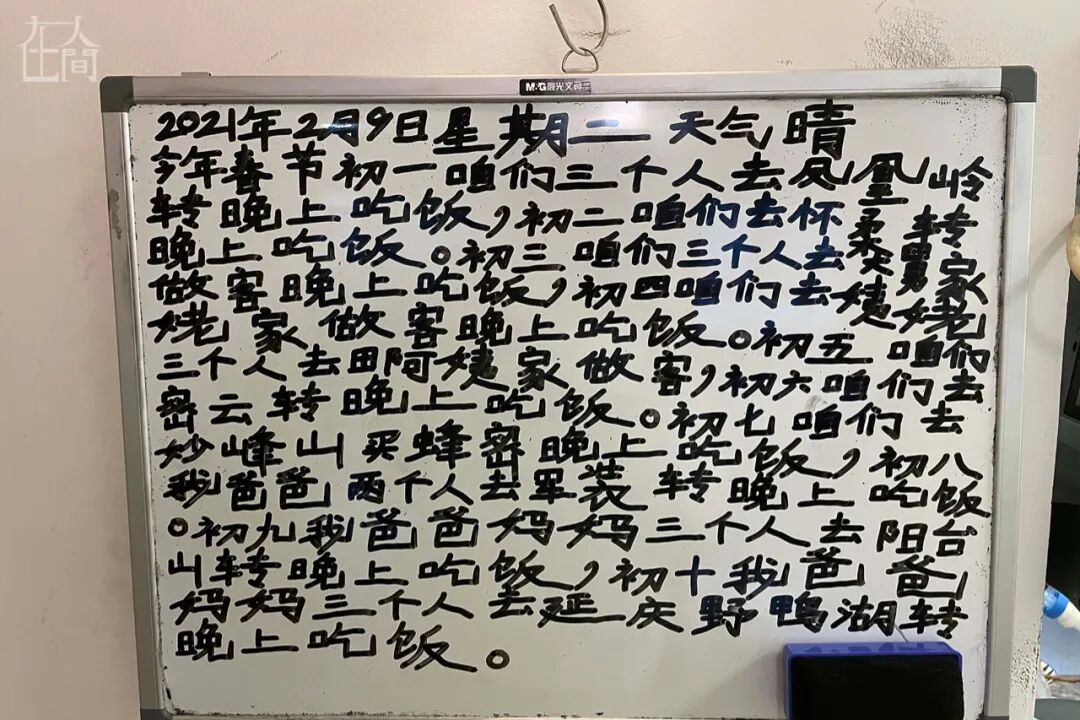 在人間
M&G晨光文具
2021年2月9日星期二 天气晴
今年春节初一咱们三个人去凤凰岭
转晚上吃饭,初二咱们去怀柔转
晚上吃饭。初三咱们三个人去舅家
做客晚上吃饭,初四咱们去姨姥
姥家做客晚上吃饭。初五咱们
三个人去田阿姨家做客,初六咱们去
密云转晚上吃饭。初七咱们去
妙峰山买蜂密晚上吃饭,初八
我爸爸两个人去军装转晚上吃饭
。初九我爸爸妈妈三个人去阳台
山转晚上吃饭,初十我爸爸
妈妈三个人去延庆野鸭湖转
晚上吃饭。